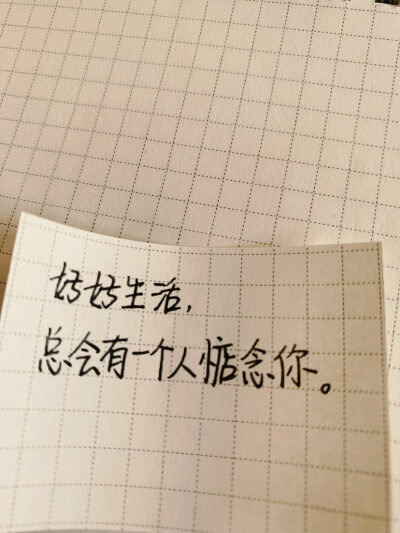 好好生活，
总会有一个人惦念你。